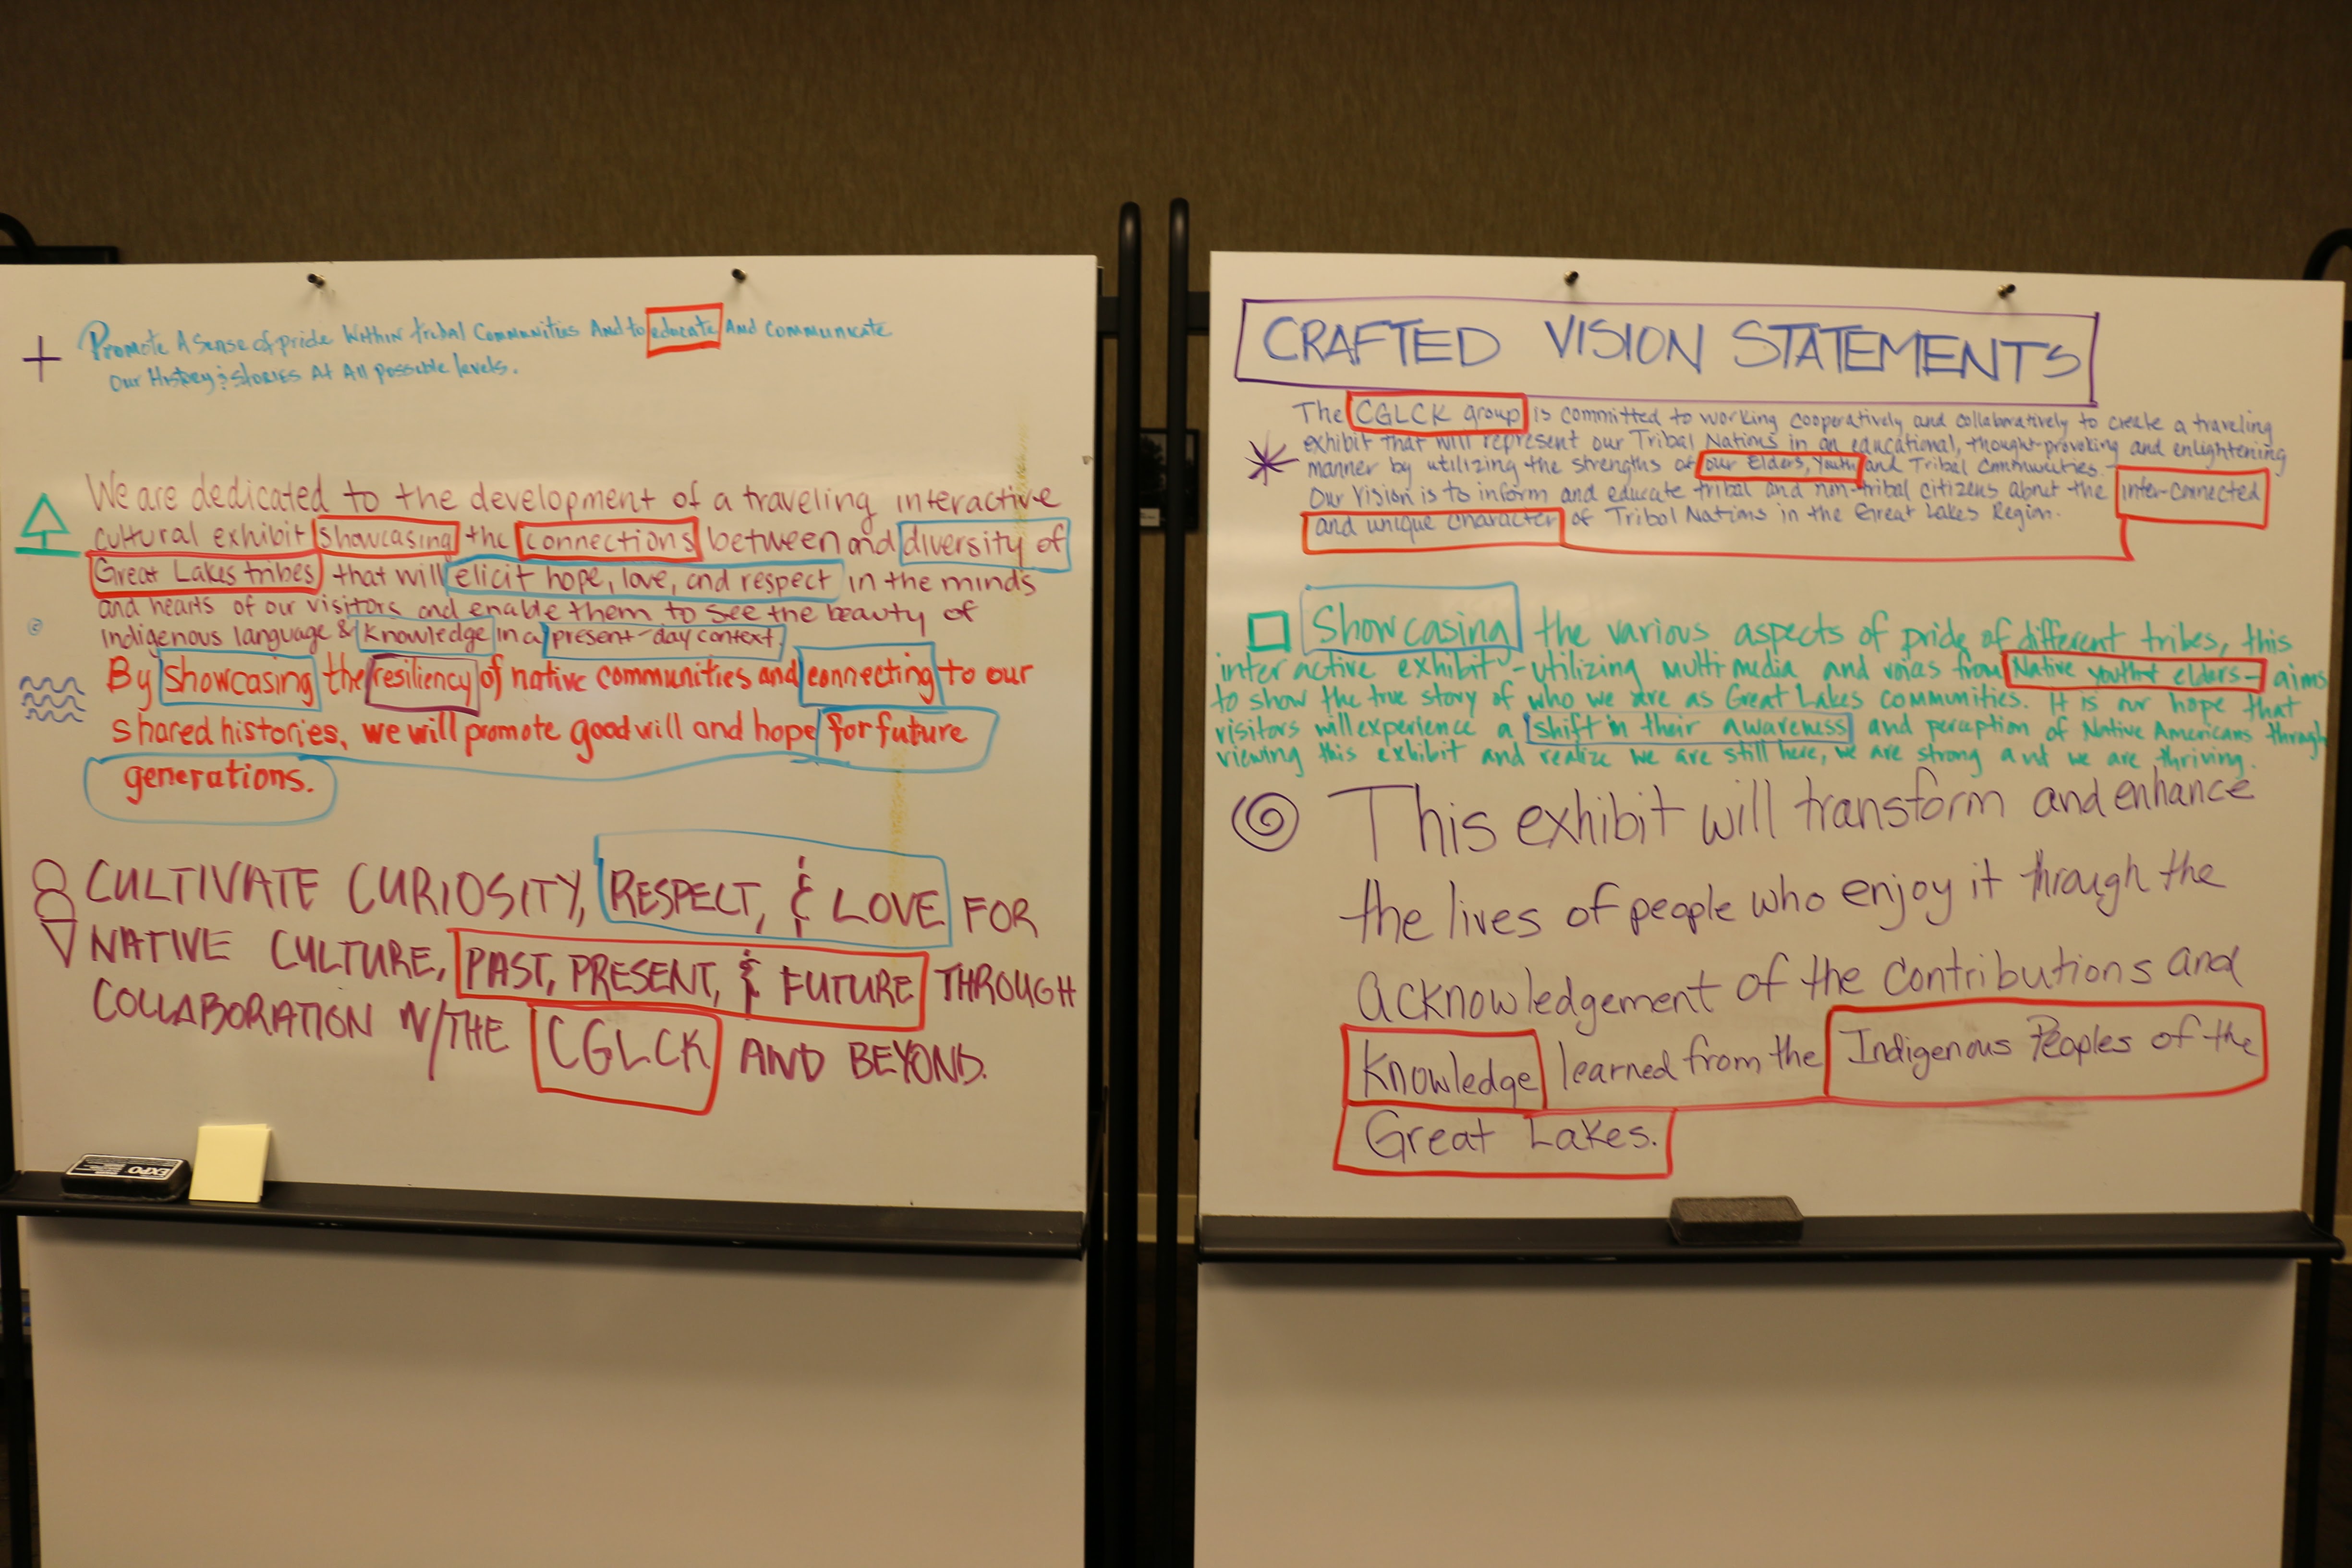 Promote A Sense of pride Within tribal Communities And to educate And communicate
Our History & Stories At All possible levels.
We are dedicated to the development of a traveling interactive
cultural exhibit showcasing the connections between and diversity of
Great Lakes tribes that will elicit hope, love, and respect in the minds
and hearts of our visitors and enable them to see the beauty of
indigenous language & knowledge in a present-day context.
By showcasing the resiliency of native communities and connecting to our
shared histories, we will promote good will and hope for future
generations.
CULTIVATE CURIOSITY, RESPECT, & LOVE FOR
NATIVE CULTURE, PAST, PRESENT, & FUTURE THROUGH
COLLABORATION W/THE CGLCK AND BEYOND.
EXPO
CRAFTED VISION STATEMENTS
The CGLCK group is committed to working cooperatively and collaboratively to create a traveling
exhibit that will represent our Tribal Nations in an educational, thought-provoking and enlightening
manner by utilizing the strengths of our Elders, Youth and Tribal Communities.
Our Vision is to inform and educate tribal and non-tribal citizens about the inter-connected
and unique character of Tribal Nations in the Great Lakes Region.
Showcasing the various aspects of pride of different tribes, this
interactive exhibit - utilizing multimedia and voices from Native youth + elders - aims
to show the true story of who we are as Great Lakes communities. It is our hope that
visitors will experience a shift in their awareness and perception of Native Americans through
viewing this exhibit and realize we are still here, we are strong and we are thriving.
This exhibit will transform and enhance
the lives of people who enjoy it through the
acknowledgement of the contributions and
Knowledge learned from the Indigenous Peoples of the
Great Lakes.